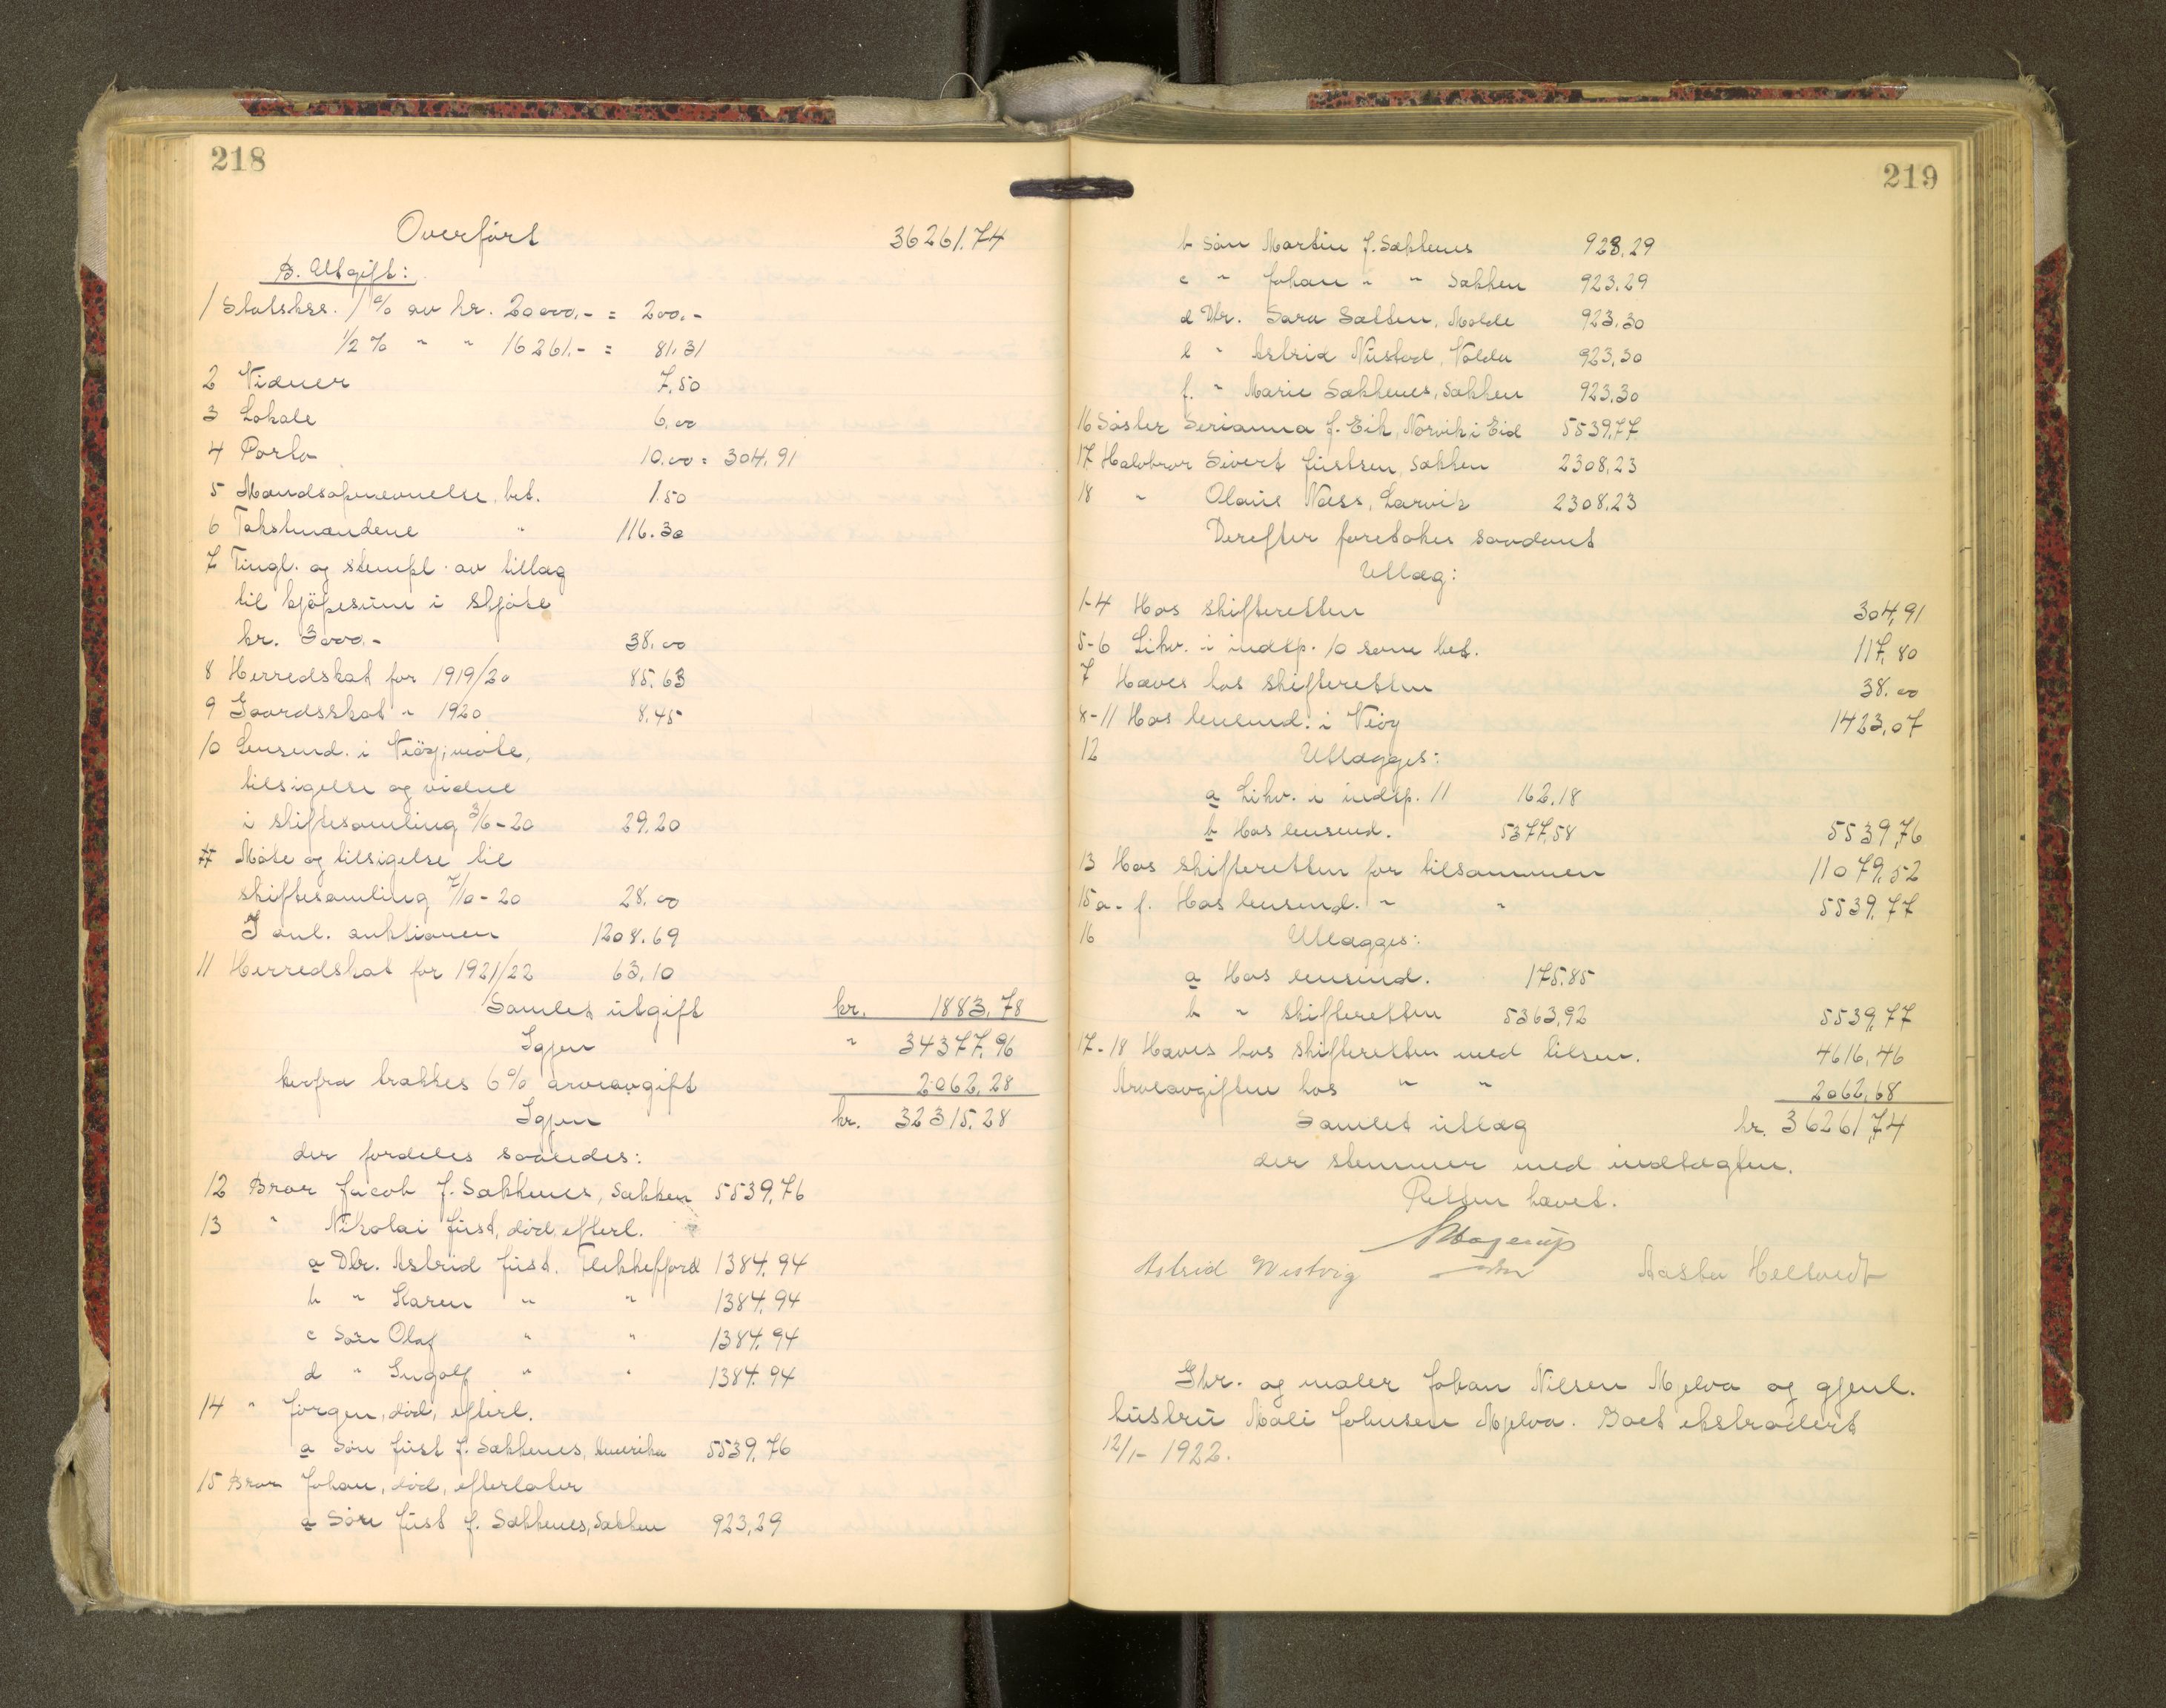 218
Overført 36261.74
B. Utgift:
1 Statskss. 1 % av kr. 20000,- = 200,-
1/2 % " " 16261.- = 81.31
2 Vidner 7,50
3 Lokale 6,00
4 Porto 10.00 = 304.91
5 Mandsopnevnelse, bet. 1.50
6 Takstmændene " 116.30
7 Tingl. og stempl. av tillæg
til kjøpesum i skjøte
kr. 3000.- 38.00
8 Herredskat for 1919/20 85.63
9 Gaardsskat " 1920 8.45
10 Lensmd. i Veøy; møte,
tilsigelse og vidne
i skiftesamling 3/6-20 29.20
Møte og tilsigelse til
skiftesamling 7/10-20 28.00
I anl. auktionen 1208.69
11 Herredskat for 1921/22 63.10
Samlet utgift kr. 1883,78
Igjen " 34377,96
herfra trækkes 6% arveavgift 2062,28
Igjen kr. 32315.28
der fordeles saaledes:
12 Bror Jacob J. Sækkenes, Sækken 5539,76
13 " Nikolai Just, død, efterl.
a Dtr. Astrid Just, Flekkefjord 1384.94
b " Karen " " 1384.94
c Søn Olaf " " 1384.94
d " Ingolf " " 1384.94
14 " Jørgen, død, efterl.
a Søn Just J. Sækkenes, Amerika 5539,76
15 Bror Johan, død, efterlater
a Søn Just J. Sækkenes, Sækken 923,29
219
b Søn Martin J. Sækkenes 923,29
c " Johan " " Sækken 923.29
d Dtr. Sara Sætten, Molde 923.30
e " Astrid Nustad, Volda 923,30
f. " Marie Sækkenes, Sækken 923.30
16 Søster Serianna J. Eik, Nørvik i Eid 5539,77
17 Halvbror Sivert Justsen, Sækken 2308,23
18 " Olaus Næss, Larvik 2308,23
Derefter foretokes saadant
Utlæg:
1-4 Hos skifteretten 304,91
5-6 Likv. i indtp. 10 som bet. 117,80
7 Hæves hos skifteretten 38.00
8-11 Hos lensmd. i Veøy 1423,07
12 Utlægges:
a Likv. i indtp. 11 162.18
b Hos lensmd. 5377,58 5539,76
13 Hos skifteretten for tilsammen 11079,52
15 a-f. Hos lensmd. " " 5539,77
16 Utlægges:
a Hos lensmd. 175.85
b " skifteretten 5363,92 5539,77
17-18 Hæves hos skifteretten med tilsm. 4616,46
Arveavgiften hos " " 2062,68
Samlet utlæg kr. 36261,74
der stemmer med indtægten.
Retten hævet.
Hagerup
Astrid Westvig Aasta Heltvedt
Gbr. og maler Johan Nilsen Mjelva og gjenl.
hustru Mali Johnsen Mjelva. Boet ekstradert
12/1-1922.